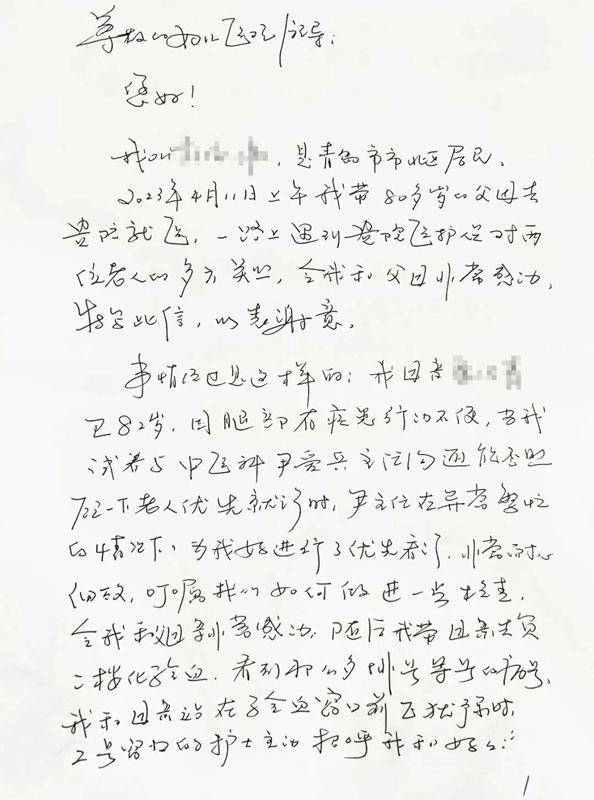 尊敬的妇儿医院领导：
您好！
我叫，是青岛市市北区居民。
2023年4月11日上午我带80多岁的父母去
贵院就医，一路上遇到贵院医护人员对两
位老人的多方关照，令我和父母非常感动，
特写此信，以表谢意。
事情经过是这样的：我母亲
已82岁，因腿部有疾患行动不便，当我
试着与中医科尹爱兵主任沟通能否照
顾一下老人优先就诊时，尹主任在异常繁忙
的情况下，为我妈进行了优先看诊，非常耐心
细致，叮嘱我们如何做进一步检查，
令我和母亲非常感动。随后我带母亲去负
二楼化验血，看到那么多排号等号的病号，
我和母亲站在验血窗口前正犹豫时，
2号窗口的护士主动招呼我和妈
1